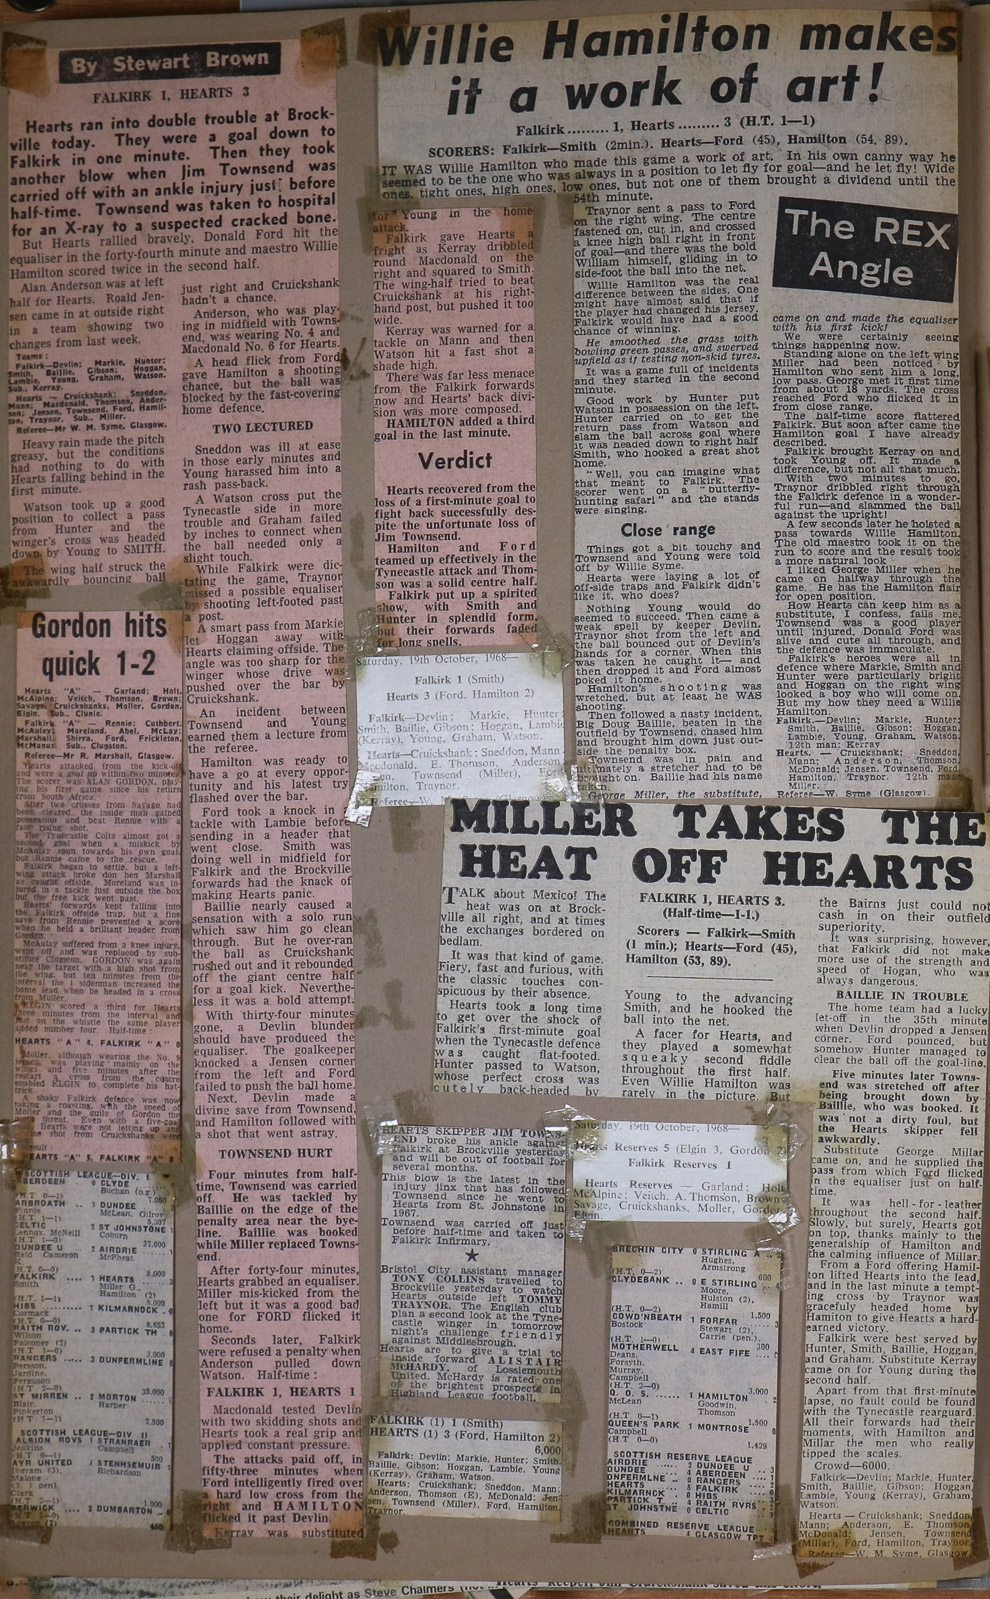 By Stewart Brown
FALKIRK 1, HEARTS 3
Hearts ran into double trouble at Brock-
ville today. They were a goal down to
Falkirk in one minute. Then they took
another blow when Jim Townsend was
carried off with an ankle injury just before
half-time. Townsend was taken to hospital
for an X-ray to a suspected cracked bone.
But Hearts rallied bravely, Donald Ford hit the
equaliser in the forty-fourth minute and maestro Willie
Hamilton scored twice in the second half.
Alan Anderson was at left
half for Hearts. Roald Jen-
sen came in at outside right
in a team showing two
changes from last week.
Teams:
Falkirk—Devlin; Markie, Hunter;
Smith, Baillie, Gibson; Hoggan,
Lambie, Young, Graham, Watson.
Sub.: Kerray.
Hearts — Cruickshank; Sneddon,
Mann; Macdonald, Thomson, Ander-
son; Jensen, Townsend, Ford, Hamil-
ton, Traynor. Sub., Miller.
Referee—Mr W. M. Syme, Glasgow.
Heavy rain made the pitch
greasy, but the conditions
had nothing to do with
Hearts falling behind in the
first minute.
Watson took up a good
position to collect a pass
from Hunter and the
winger's cross was headed
down by Young to SMITH.
The wing half struck the
awkwardly bouncing ball
just right and Cruickshank
hadn't a chance.
Anderson, who was play-
ing in midfield with Towns-
end, was wearing No. 4 and
Macdonald No. 6 for Hearts.
A head flick from Ford
gave Hamilton a shooting
chance, but the ball was
blocked by the fast-covering
home defence.
TWO LECTURED
Sneddon was ill at ease
in those early minutes and
Young harassed him into a
rash pass-back.
A Watson cross put the
Tynecastle side in more
trouble and Graham failed
by inches to connect when
the ball needed only a
slight touch.
While Falkirk were dic-
tating the game, Traynor
missed a possible equaliser
by shooting left-footed past
a post.
A smart pass from Markie
let Hoggan away with
Hearts claiming offside. The
angle was too sharp for the
winger whose drive was
pushed over the bar by
Cruickshank.
An incident between
Townsend and Young
earned them a lecture from
the referee.
Hamilton was ready to
have a go at every oppor-
tunity and his latest try
flashed over the bar.
Ford took a knock in a
tackle with Lambie before
sending in a header that
went close. Smith was
doing well in midfield for
Falkirk and the Brockville
forwards had the knack of
making Hearts panic.
Baillie nearly caused a
sensation with a solo run
which saw him go clean
through. But he over-ran
the ball as Cruickshank
rushed out and it rebounded
off the giant centre half
for a goal kick. Neverthe-
less it was a bold attempt.
With thirty-four minutes
gone, a Devlin blunder
should have produced the
equaliser. The goalkeeper
knocked a Jensen corner
from the left and Ford
failed to push the ball home.
Next, Devlin made a
diving save from Townsend,
and Hamilton followed with
a shot that went astray.
TOWNSEND HURT
Four minutes from half-
time, Townsend was carried
off. He was tackled by
Baillie on the edge of the
penalty area near the bye-
line. Baillie was booked
while Miller replaced Towns-
end.
After forty-four minutes,
Hearts grabbed an equaliser.
Miller mis-kicked from the
left but it was a good bad
one for FORD flicked it
home.
Seconds later, Falkirk
were refused a penalty when
Anderson pulled down
Watson. Half-time:
FALKIRK 1, HEARTS 1
Macdonald tested Devlin
with two skidding shots and
Hearts took a real grip and
applied constant pressure.
The attacks paid off, in
fifty-three minutes when
Ford intelligently fired over
a hard low cross from the
right and HAMILTON
flicked it past Devlin.
Kerray was substituted
for Young in the home
attack.
Falkirk gave Hearts a
fright as Kerray dribbled
round Macdonald on the
right and squared to Smith.
The wing-half tried to beat
Cruickshank at his right-
hand post, but pushed it too
wide.
Kerray was warned for a
tackle on Mann and then
Watson hit a fast shot a
shade high.
There was far less menace
from the Falkirk forwards
now and Hearts' back divi-
sion was more composed.
HAMILTON added a third
goal in the last minute.
Verdict
Hearts recovered from the
loss of a first-minute goal to
fight back successfully des-
pite the unfortunate loss of
Jim Townsend.
Hamilton and Ford
teamed up effectively in the
Tynecastle attack and Thom-
son was a solid centre half.
Falkirk put up a spirited
show, with Smith and
Hunter in splendid form,
but their forwards faded
for long spells.
Saturday, 19th October, 1968—
Falkirk 1 (Smith)
Hearts 3 (Ford, Hamilton 2)
Falkirk—Devlin; Markie, Hunter;
Smith, Baillie, Gibson; Hoggan, Lambie
(Kerray), Young, Graham, Watson.
Hearts—Cruickshank; Sneddon, Mann
Macdonald, E. Thomson, Anderson
Jensen, Townsend (Miller), Ford
Hamilton, Traynor.
Willie Hamilton makes
it a work of art!
Falkirk......... 1, Hearts ......... 3 (H.T. 1—1)
SCORERS: Falkirk—Smith (2min.). Hearts—Ford (45), Hamilton (54, 89).
IT WAS Willie Hamilton who made this game a work of art. In his own canny way he
seemed to be the one who was always in a position to let fly for goal—and he let fly! Wide
ones, tight ones, high ones, low ones, but not one of them brought a dividend until the
54th minute.
Traynor sent a pass to Ford
on the right wing. The centre
fastened on, cut in, and crossed
a knee high ball right in front
of goal—and there was the bold
William himself, gliding in to
side-foot the ball into the net.
Willie Hamilton was the real
difference between the sides. One
might have almost said that if
the player had changed his jersey,
Falkirk would have had a good
chance of winning.
He smoothed the grass with
bowling green passes, and swerved
upfield as if testing non-skid tyres.
It was a game full of incidents
and they started in the second
minute.
Good work by Hunter put
Watson in possession on the left.
Hunter carried on to get the
return pass from Watson and
slam the ball across goal where
it was headed down to right half
Smith, who hooked a great shot
home.
"Well, you can imagine what
that meant to Falkirk. The
scorer went on a "butterfly-
hunting safari" and the stands
were singing.
Close range
Things got a bit touchy and
Townsend and Young were told
off by Willie Syme.
Hearts were laying a lot of
off-side traps and Falkirk didn't
like it. who does?
Nothing Young would do
seemed to succeed. Then came a
weak spell by keeper Devlin.
Traynor shot from the left and
the ball bounced out of Devlin's
hands for a corner. When this
was taken he caught it— and
then dropped it and Ford almost
poked it home.
Hamilton's shooting was
wretched, but at least he WAS
shooting.
Then followed a nasty incident.
Big Doug Baillie, beaten in the
outfield by Townsend, chased him
and brought him down just out-
side the penalty box.
Townsend was in pain and
ultimately a stretcher had to be
brought on. Baillie had his name
taken.
George Miller, the substitute,
The REX
Angle
came on and made the equaliser
with his first kick!
We were certainly seeing
things happening now.
Standing alone on the left wing
Miller had been noticed by
Hamilton who sent him a long,
low pass. George met it first time
from about 18 yards. The cross
reached Ford who flicked it in
from close range.
The half-time score flattered
Falkirk. But soon after came the
Hamilton goal I have already
described.
Falkirk brought Kerray on and
took Young off. It made a
difference, but not all that much.
With two minutes to go,
Traynor dribbled right through
the Falkirk defence in a wonder-
ful run—and slammed the ball
against the upright!
A few seconds later he hoisted a
pass towards Willie Hamilton.
The old maestro took it on the
run to score and the result took
a more natural look
I liked George Miller when he
came on halfway through the
game. He has the Hamilton flair
for open position.
How Hearts can keep him as a
substitute, I confess, fails me.
Townsend was a good player
until injured, Donald Ford was
alive and cute all through, and
the defence was immaculate.
Falkirk's heroes were all in
defence where Markie, Smith and
Hunter were particularly bright
and Hoggan on the right wing
looked a boy who will come on.
But my how they need a Willie
Hamilton.
Falkirk.—Devlin; Markie, Hunter;
Smith, Baillie, Gibson; Hoggan,
Lambie, Young, Graham, Watson.
12th man: Kerray
Hearts. — Cruickshank; Sneddon,
Mann; Anderson, Thomson,
McDonald; Jensen, Townsend, Ford,
Hamilton, Traynor. 12th man
Miller.
Referee—W. Syme (Glasgow).
Gordon hits
quick 1-2
Hearts "A" Garland; Holt,
McAlpine; Veitch, Thomson, Brown;
Savage, Cruickshanks, Moller, Gordon,
Elgin. Sub., Clunie.
Falkirk "A" — Rennie; Cuthbert,
McAuley; Moreland, Abel, McLay;
Marshall, Shirra, Ford, Frickleton,
McManus. Sub., Clugston.
Referee—Mr R. Marshall, Glasgow.
Hearts attacked from the kick-off
and were a goal up within two minutes.
The scorer was ALAN GORDON, play-
ing his first game since his return
from South Africa.
After two crosses from Savage had
been cleared, the inside man gained
possession and beat Rennie with a
fast rising shot.
The Tynecastle Colts almost got a
second goal when a miskick by
McAulay spun towards his own goal,
but Rennie came to the rescue.
HEARTS "A" 4, FALKIRK "A" 0
HEARTS "A" 5, FALKIRK "A" 1
MILLER TAKES THE
HEAT OFF HEARTS
TALK about Mexico! The
heat was on at Brock-
ville all right, and at times
the exchanges bordered on
bedlam.
It was that kind of game.
Fiery, fast and furious, with
the classic touches con-
spicuous by their absence.
Hearts took a long time
to get over the shock of
Falkirk's first-minute goal
when the Tynecastle defence
was caught flat-footed.
Hunter passed to Watson,
whose perfect cross was
cutely back-headed by
FALKIRK 1, HEARTS 3.
(Half-time—1-1.)
Scorers — Falkirk—Smith
(1 min.); Hearts—Ford (45),
Hamilton (53, 89).
Young to the advancing
Smith, and he hooked the
ball into the net.
A facer for Hearts, and
they played a somewhat
squeaky second fiddle
throughout the first half.
Even Willie Hamilton was
rarely in the picture. But
the Bairns just could not
cash in on their outfield
superiority.
It was surprising, however,
that Falkirk did not make
more use of the strength and
speed of Hogan, who was
always dangerous.
BAILLIE IN TROUBLE
The home team had a lucky
let-off in the 35th minute
when Devlin dropped a Jensen
corner. Ford pounced, but
somehow Hunter managed to
clear the ball off the goal-line.
Five minutes later Towns-
end was stretched off after
being brought down by
Baillie, who was booked. It
was not a dirty foul, but
the Hearts skipper fell
awkwardly.
Substitute George Millar
came on, and he supplied the
pass from which Ford flicked
in the equaliser just on half-
time.
It was hell-for-leather
throughout the second half.
Slowly, but surely, Hearts got
on top, thanks mainly to the
generalship of Hamilton and
the calming influence of Millar.
From a Ford offering Hamil-
ton lifted Hearts into the lead,
and in the last minute a tempt-
ing cross by Traynor was
gracefully headed home by
Hamiton to give Hearts a hard-
earned victory.
Falkirk were best served by
Hunter, Smith, Baillie, Hoggan,
and Graham. Substitute Kerray
came on for Young during the
second half.
Apart from that first-minute
lapse, no fault could be found
with the Tynecastle rearguard.
All their forwards had their
moments, with Hamilton and
Millar the men who really
tipped the scales.
Crowd—6000.
Falkirk—Devlin; Markie, Hunter,
Smith, Baillie, Gibson; Hoggan,
Lambie, Young (Kerray), Graham,
Watson.
Hearts — Cruickshank; Sneddon,
Mann; Anderson, E. Thomson,
McDonald; Jensen, Townsend
(Millar), Ford, Hamilton, Traynor.
Referee—W. M. Syme, Glasgow.
HEARTS SKIPPER JIM TOWNS-
END broke his ankle against
Falkirk at Brockville yesterday
and will be out of football for
several months.
This blow is the latest in the
injury jinx that has followed
Townsend since he went to
Hearts from St. Johnstone in
1967.
Townsend was carried off just
before half-time and taken to
Falkirk Infirmary.
Bristol City assistant manager
TONY COLLINS travelled to
Brockville yesterday to watch
Hearts outside left TOMMY
TRAYNOR. The English club
plan a second look at the Tyne-
castle winger in tomorrow
night's challenge friendly
against Middlesbrough.
Hearts are to give a trial to
inside forward ALISTAIR
MCHARDY, of Lossiemouth
United. McHardy is rated one
of the brightest prospects in
Highland League football.
FALKIRK (1) 1 (Smith)
HEARTS (1) 3 (Ford, Hamilton 2)
6,000
Falkirk: Devlin; Markie, Hunter; Smith,
Baillie, Gibson; Hoggan, Lambie, Young
(Kerray), Graham, Watson.
Hearts: Cruickshank; Sneddon, Mann;
Anderson, Thomson (E) McDonald; Jen-
sen, Townsend (Miller), Ford, Hamilton,
Traynor.
Saturday, 19th October, 1968—
Hearts Reserves 5 (Elgin 3, Gordon 2)
Falkirk Reserves 1
Hearts Reserves — Garland; Holt
McAlpine; Veitch, A. Thomson, Brown
Savage, Cruickshanks, Moller, Gordon
Elgin.
SCOTTISH LEAGUE—DIV. I
ABERDEEN 0 CLYDE
Buchan (o.g.)
ARBROATH 1 DUNDEE
McLean, Gilroy
CELTIC 2 ST JOHNSTONE
Coburn
DUNDEE U 2 AIRDRIE
Cameron McPheat
FALKIRK .... 1 HEARTS 3
Smith Miller G.,
Hamilton (2)
HIBS 1 KILMARNOCK
RAITH ROV. 3 PARTICK TH
RANGERS 3 DUNFERMLINE 0
ST MIRREN 1 MORTON
Harper
SCOTTISH LEAGUE—DIV II
ALBION ROVS 1 STRANRAER
Campbell
AYR UNITED 2 STENHSEMUIR
Richardson
BERWICK DUMBARTON
BRECHIN CITY 0 STIRLING A
CLYDEBANK .. 0 E STIRLING
Moore,
Rulston (2),
Hamill
COWD'NBEATH 1 FORFAR
Bostock Stewart (2),
Carrie (pen.)
MOTHERWELL 4 EAST FIFE
Deans,
Forsyth,
Murray,
Campbell
Q. O. S. 1 HAMILTON
McLean Goodwin,
Thomson
QUEEN'S PARK 1 MONTROSE
Campbell
1,429
SCOTTISH RESERVE LEAGUE
AIRDRIE DUNDEE U
DUNDEE 4 ABERDEEN
DNFERMLNE 0 RANGERS
HEARTS 5 FALKIRK
KILMARNOCK 0 HIBS
PARTICK T. 4 RAITH RVRS
ST JOHNSTNE 0 CELTIC
COMBINED RESERVE LEAGUE
HEARTS 4 GLASGOW TPT
their delight as Steve Chalmers